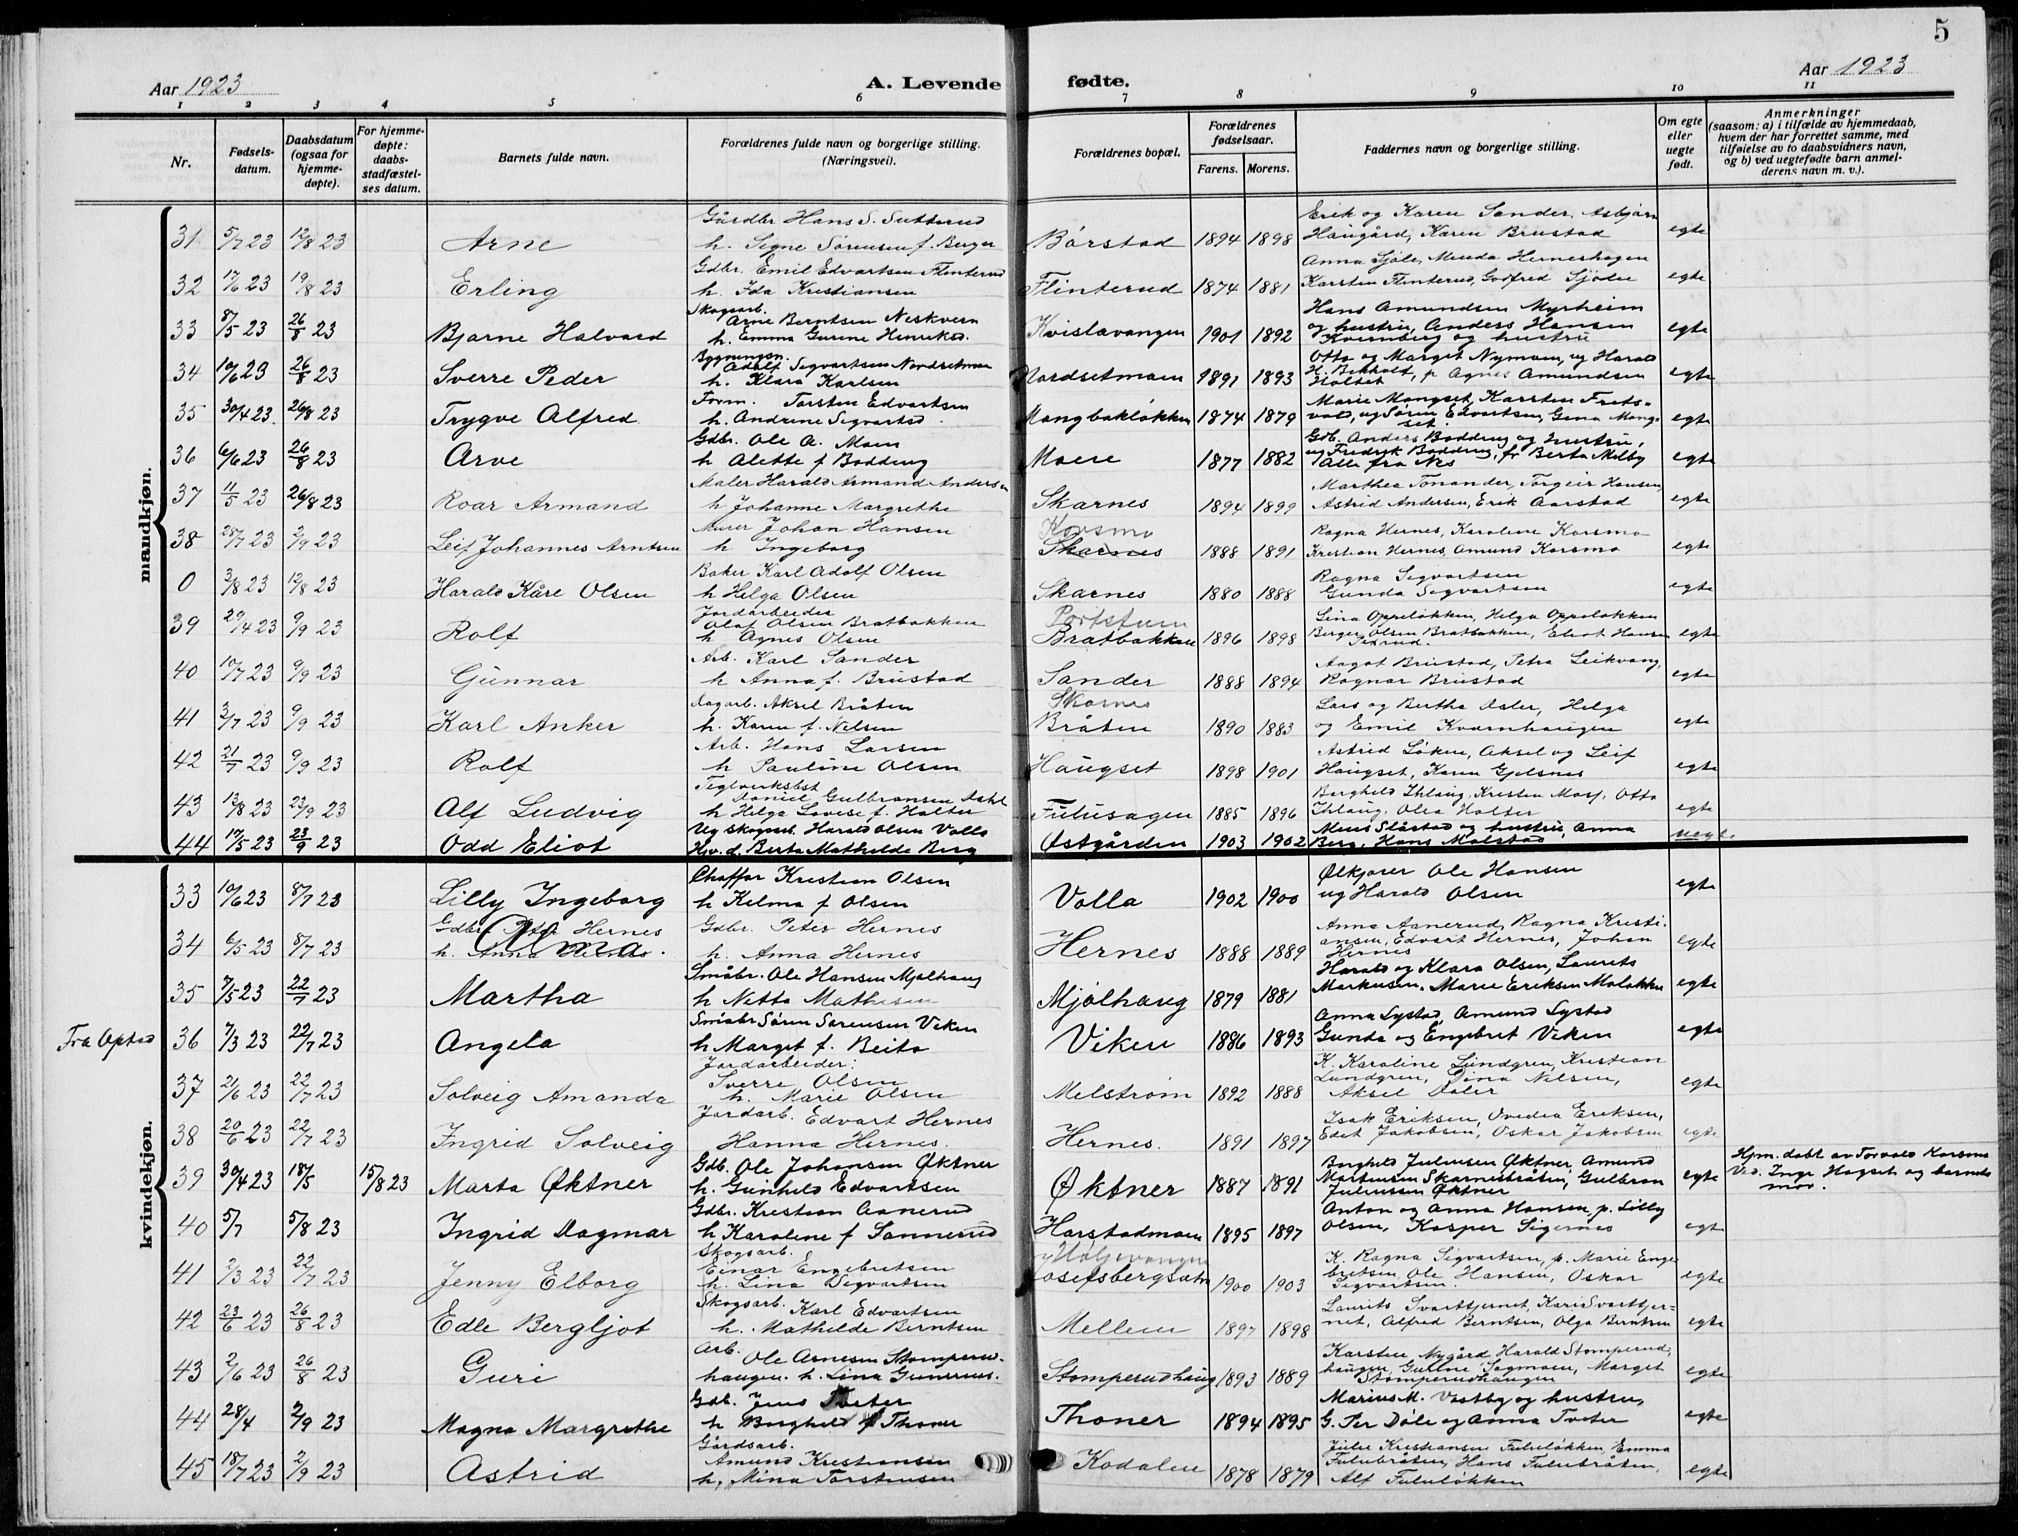 5
Aar 1923
A. Levende fødte.
Aar 1923
1 2 3 4 5 6 7 8 9 10 11
Nr.
Fødsels-
datum.
Daabsdatum
(ogsaa for
hjemme-
døpte).
For hjemme-
døpte:
daabs-
stadfæstel-
ses datum.
Barnets fulde navn.
Forældrenes fulde navn og borgerlige stilling.
(Næringsvei).
Forældrenes bopæl.
Forældrenes
fødselsaar.
Farens. Morens.
Faddernes navn og borgerlige stilling.
Om egte
eller
uegte
født.
Anmerkninger
(saasom: a) i tilfælde av hjemmedaab,
hvem der har forrettet samme, med
tilføielse av to daabsvidners navn,
og b) ved uegtefødte barn anmel-
derens navn m. v.).
mandkjøn.
31 5/7 23 12/8 23 Arne Gårdbr Hans S. Sutterud
h. Signe Sørensen f. Berger Børstad 1894 1898 Erik og Karen Sander, Asbjørn
Haugård, Karen Brustad egte
32 17/6 23 19/8 23 Erling Gdbr. Emil Edvartsen Flinterud
h. Ida Kristiansen Flinterud 1874 1881 Anna Sjöli, Herneshagen
Karsten Flinterud, Godfred Sjölie egte
33 8/5 23 26/8 23 Bjarne Halvard Skogsarb.
Arne Berntsen Neskvern
h. Emma Gurine Henriks. Kvislavangen 1901 1892 Hans Amundsen Myrheim
og hustru, Anders Hansen
og hustru egte
34 10/6 23 26/8 23 Sverre Peder Bygningsn.
Adolf Sigvartsen Nordsetmoen
h. Klara Karlsen Nordsetmoen 1891 1893 Otto og Marget Nyman, ug Harald
H. p Agnes Amundsen
Holset egte
35 30/4 23. 26/8 23 Trygve Alfred Form. Torsten Edvartsen
h. Andrine Sigvartsd. Mangbakløkken 1874 1879 Marie Mangset, Karsten Frets-
vold, ug Søren Edvartsen, Gena Mang-
set. egte
36 6/6 23 26/8 23 Arve Gdbr. Ole A. Moen
h Alette f Bodding Moen 1877 1882 Gdb. Anders Bodding og hustru,
ug Fredrik Bodding, fr Berta Melby
Alle fra Nes egte
37 11/5 23 26/8 23 Roar Armand Maler Harald Armand Andersen
h Johanne Margrethe Skarnes 1894 1899 Marthea Tonander, Torgeir Hansen,
Astrid Andersen, Erik Aarstad egte
38 28/7 23 2/9 23 Leif Johannes Arntsen Murer Johan Hansen
h Ingeborg Korsmo
Skarnes 1888 1891 Ragna Hernes, Karoline Korsmo
Kristian Hernes, Amund Korsmo egte
0 3/8 23 12/8 23 Harald Kåre Olsen Baker Karl Adolf Olsen
h Helga Olsen Skarnes 1880 1888 Ragna Sigvartsen
Gunda Sigvartsen egte
39 29/4 23 9/9 23 Rolf Jordarbeider
Olaf Olsen Bratbakken
h Agnes Olsen
Bratbakken 1896 1898 Lina Oppeløkken, Helga Oppeløkken
Berger Olsen Bratbakken, Eliot Hansen egte
40 10/7 23 9/9 23 Gunnar Arb. Karl Sander
h Anna f. Brustad Sander 1888 1894 Aagot Brustad, Petra Leikvang,
Ragnar Brustad egte
41 3/7 23 9/9 23 Karl Anker Dagarb. Aksel Bråten
h. Karen f. Nilsen Skarnes
Bråten 1890 1883 Lars og Bertha Dsler, Helga
og Emil Kvarnhaugen egte
42 21/7 23 9/9 23 Rolf Arb. Hans Larsen
h Pauline Olsen Haugset 1898 1901 Astrid Löken, Aksel og Leif
Haugset, Karen Gjelsnes egte
43 12/8 23 23/9 23 Alf Ludvig Teglverksbst
Daniel Gulbransen
h Helga Lovise f. Holter Fulusagen 1885 1896 Borghild Ihlaug, Kristen Mosf, Otto
Ihlaug, Olea Holter egte
44 10/5 23 23/9 23 Odd Eliot Ug skogsarb. Harald Olsen Volla
Berta Mathilde Berg Østgården 1903 1902 Slåstad og hustru, Anna
Berg, Hans Molstad uegte
kvindekjøn.
33 10/6 23 8/7 23 Lilly Ingeborg Chaffør Kristian Olsen
h Kelma f Olsen Volla 1902 1900 Ølkjører Ole Hansen
ug Harald Olsen egte
34 6/5 23 8/7 23 Gdbr. Peter Hernes
h. Anna Hernes. Alma Gdbr. Peter Hernes
h. Anna Hernes Hernes 1888 1889 Anna Aanerud, Ragna Kristi-
ansen, Edvart Hernes, Johan
Hernes egte
35 7/5 23 22/7 23 Martha Småbr. Ole Hansen Mjølhaug
h Netta Mathisen Mjølhaug 1879 1881 Harald og Klara Olsen, Laurits
Markusen, Marie Eriksen Moløkken egte
Fra Opstad 36 7/3 23 22/7 23 Angela Småbr Søren Sørensen Viken
h Marget f. Beito Viken 1886 1893 Anna Lystad, Amund Lystad
Gunda og Engebret Viken egte
37 21/6 23 22/7 23 Solveig Amanda Jordarbeider.
Sverre Olsen
h. Marie Olsen Melstrøm 1892 1888 K. Karoline Lundgren, Kristian
Lundgren, Dina Nilsen,
Aksel Dsler egte
38 20/6 23 22/7 23 Ingrid Solveig Jordarb. Edvart Hernes
Hanna Hernes. Hernes. 1891 1897 Isak Eriksen, Ovedia Eriksen,
Edit Jakobsen, Oskar Jakobsen egte
39 30/4 23 18/5 15/8 23 Marta Øktner Gdb. Ole Johansen Øktner
h. Gunhild Edvartsen Øktner 1887 1891 Borghild Juliussen Øktner, Amund
Martinsen Skarnesbråten, Gulbran
Juliussen Øktner egte Hjm. døbt av Torvald Korsmo
Vid. Inga Hagset og barnets
mor.
40 5/7 5/8 23 Ingrid Dagmar Gdbr. Kristian Aanerud
h Karoline f Sannerud Harstadmoen 1895 1897 Anton og Anna Hansen, p. Lilly
Olsen, Kasper Sigernes egte
41 2/3 23 22/7 23 Jenny Elborg Skogsarb.
Einar Engebretsen
h. Lina Sigvartsen
Josefsbergsætr 1900 1903 K. Ragna Sigvartsen, p. Marie Enge-
bretsen Ole Hansen, Oskar
Sigvartsen. egte
42 23/6 23 26/8 23 Edle Bergljot Skogsarb. Karl Edvartsen
h. Mathilde Berntsen Mellem 1897 1898 Laurits Svarttjernet, Kari Svarttjer-
net, Alfred Berntsen, Olga Berntsen egte
43 2/6 23 26/8 23 Guri Arb.
Ole Arnesen Stomperud-
haugen. h. Lina Gunerius. Stomperudhaug 1893 1889 Karsten Nygård, Harald Stomperud-
haugen, Gulline Sagmoen, Marget
Stomperudhaugen egte
44 28/4 2/9 23 Magna Margrethe Gdb. Jens Tveter
h Borghild f Thoner Thoner 1894 1895 Marius M. Vestby og hustru,
G. Per Døle og Anna Tveter egte
45 18/7 23 2/9 23 Astrid Gårdsarb.
Amund Kristiansen
h, Mina Torstensen Kodalen 1878 1879 Julie Kristiansen Fululøkken, Emma
Fulubråten, Hans Fulubråten,
Alf Fululøkken egte